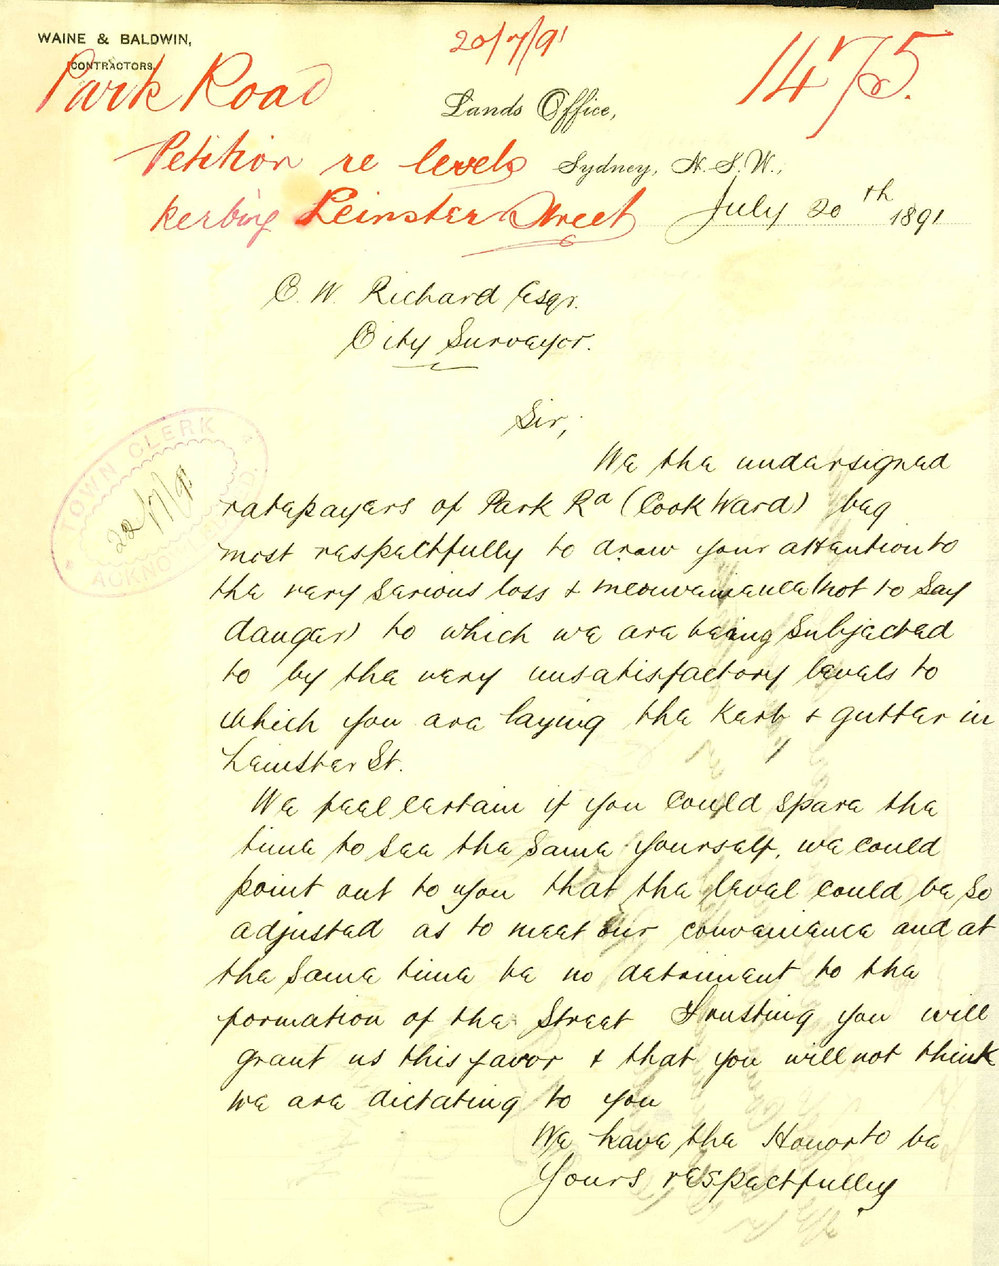 WAINE & BALDWIN,
CONTRACTORS.
20/7/91
1475.
Park Road
Petition re levels
kerbing Leinster Street
Lands Office,
Sydney, N.S.W.,
July 20th 1891
C. W. Richard Esqr.
City Surveyor.
TOWN CLERK
22/7/91
Sir,
We the undersigned
ratepayers of Park Rd (Cook Ward) beg
most respectfully to draw your attention to
the very serious loss & inconvenience (not to say
danger) to which we are being subjected
to by the very unsatisfactory levels to
which you are laying the kerb & gutter in
Leinster St.
We feel certain if you could spare the
time to see the same yourself, we could
point out to you that the level could be so
adjusted as to meet our convenience and at
the same time be no detriment to the
formation of the Street Trusting you will
grant us this favor & that you will not think
we are dictating to you
We have the Honor to be
Yours respectfully